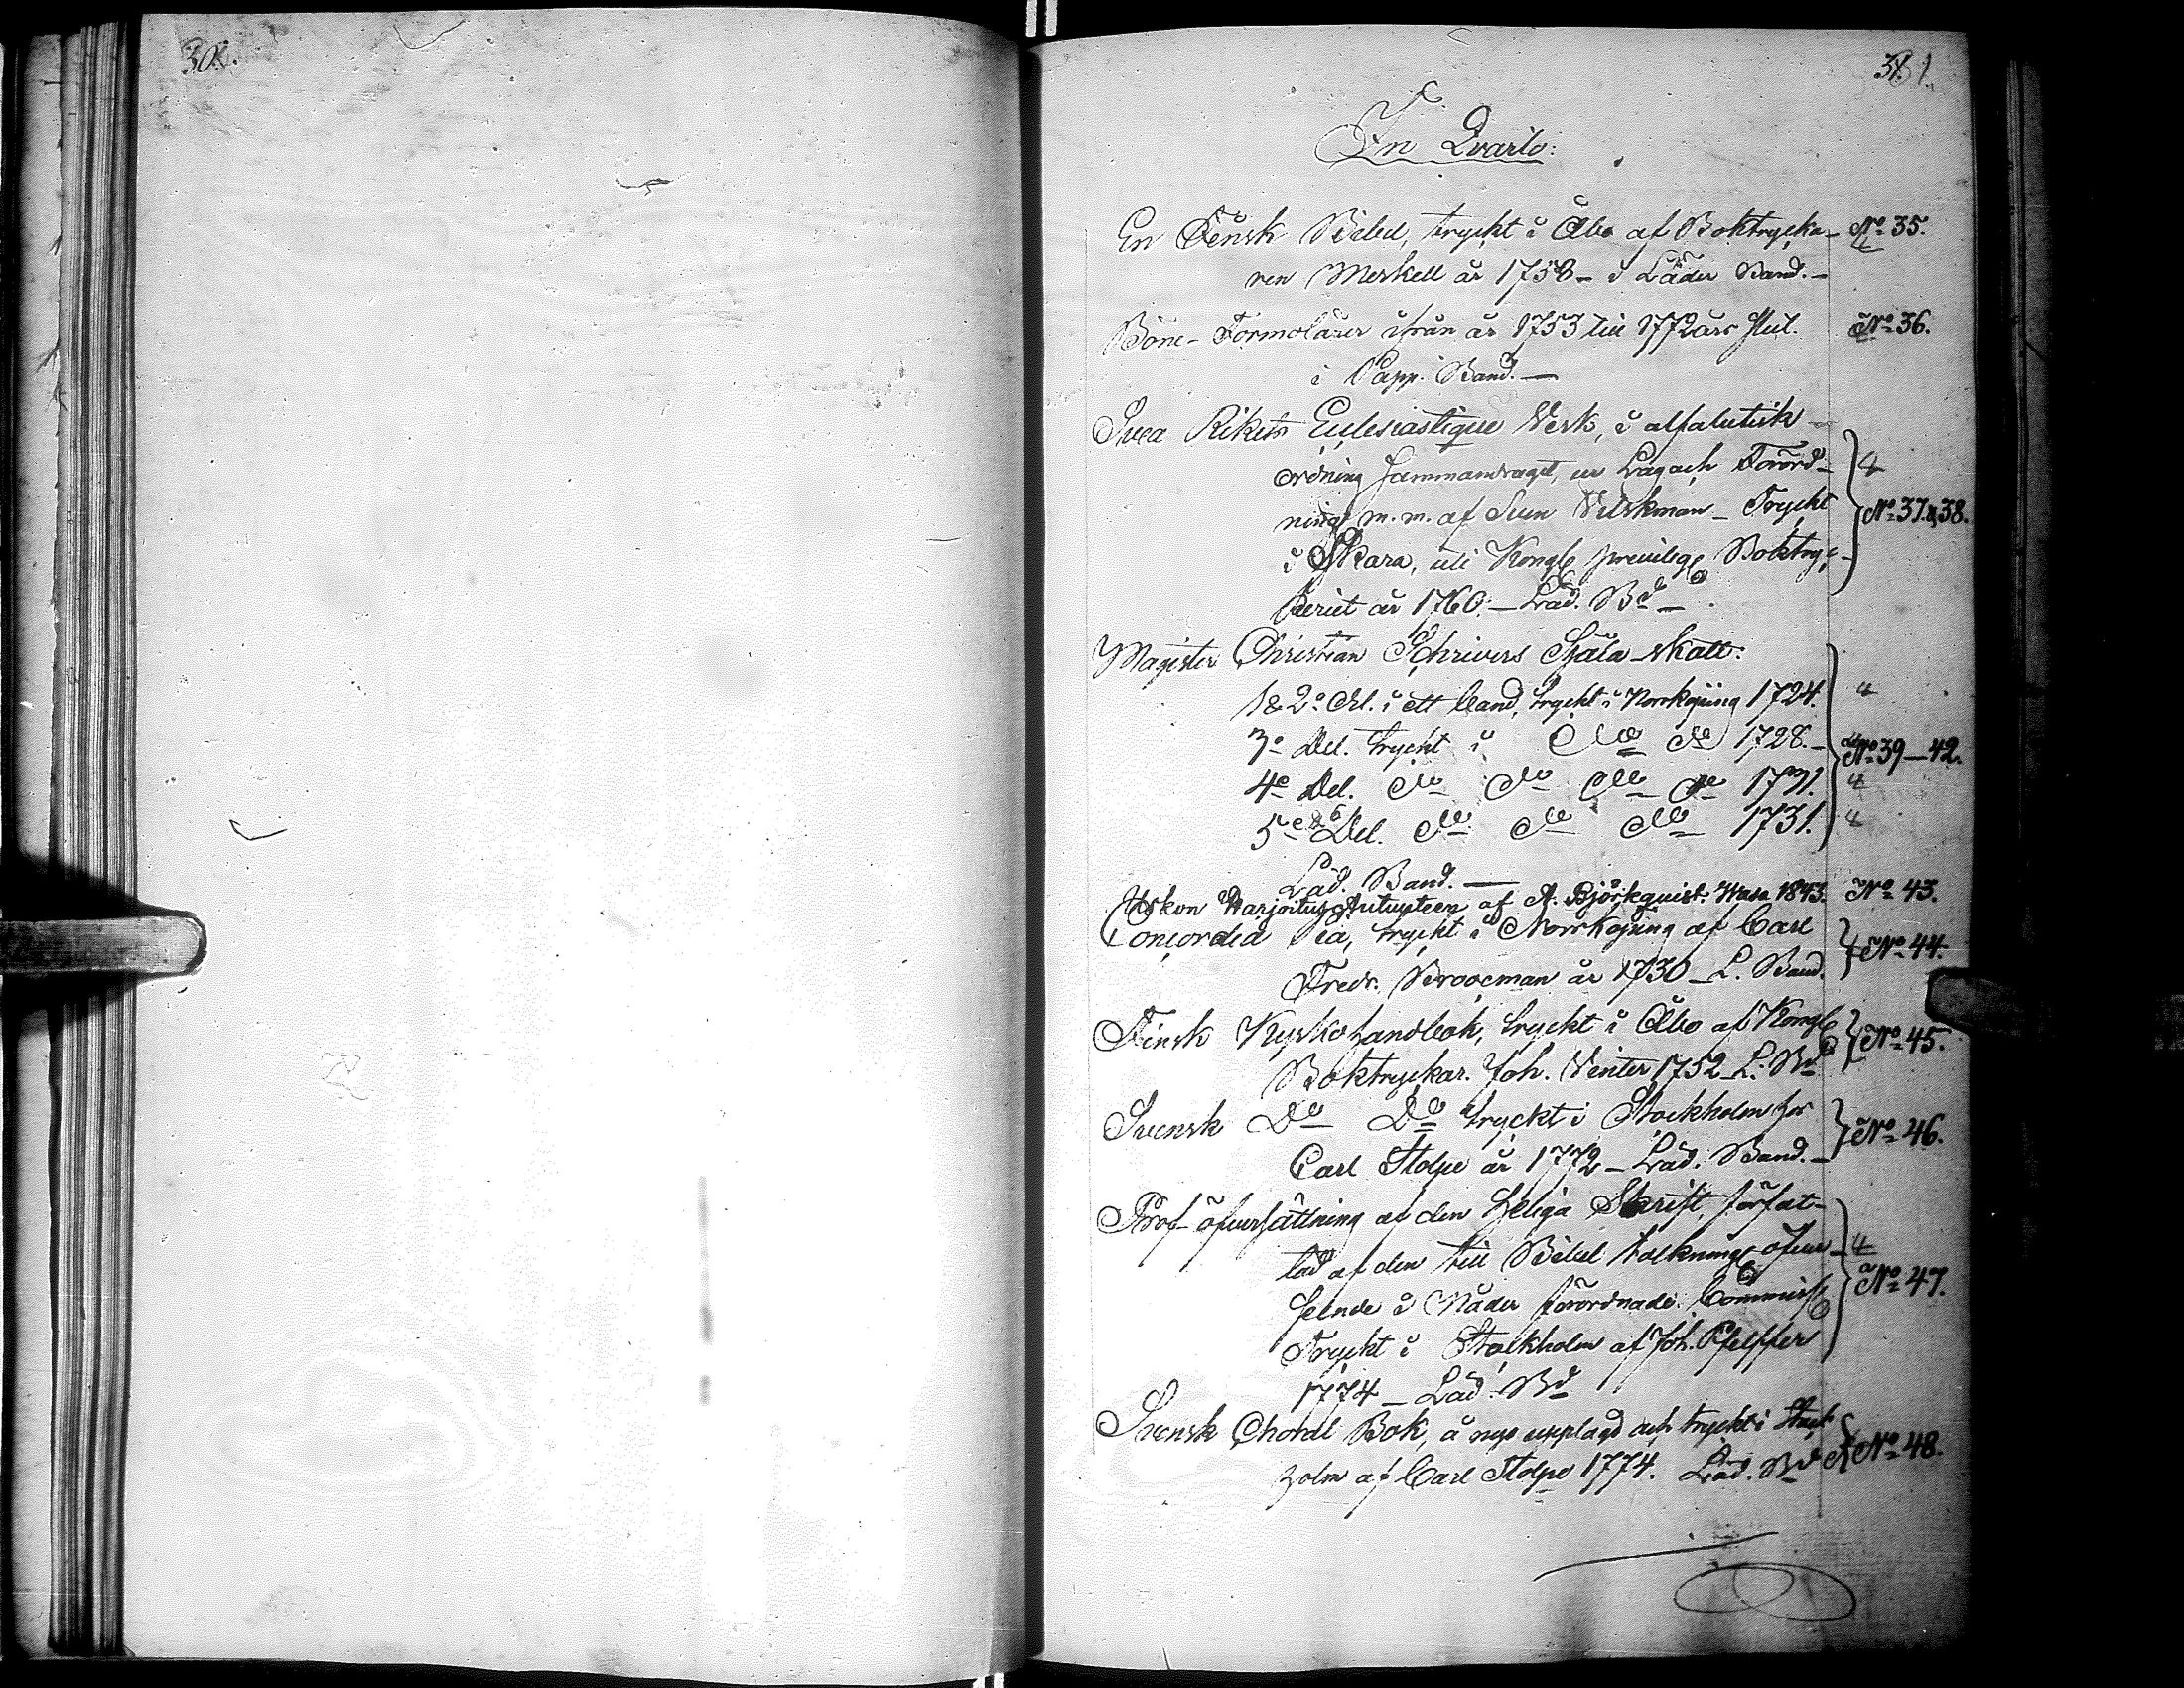 30.
31.
In Qvarto:
En Finsk Bibel, tryckt i Åbo af Boktrycka- No 35.
ren Merkell år 1758 - i Läder Band. -
Böne-Formolärer ifrån år 1753 till 1772 års slut. No 36.
i Papp. Band. —
Svea Rikets Ecclesiastique Verk, i alfabetisk
ordning sammandraget, ur Lag och Förord-
ning m. m. af Sven Wilskman - Tryckt No 37. & 38.
i Skara, uti Kongl. privileg. Boktryc-
keriet år 1760. - Läd. Bd -
Magister Christian Schrivers Själa-skatt:
1 & 2o del. i ett band, tryckt i Norrköping 1724.
3o Del. tryckt i do do 1728. - No 39-42.
4e Del. do do do do 1731.
5e & 6 Del. do do do 1731.
Läd. Band. —
Uskon Harjoitus Autuuteen af A. Björkquist. Wasa 1843. No 43.
Concordia Pia, tryckt i Norrköping af Carl
Fredr. Broocman år 1730 - L. Band. No 44.
Finsk Kyrkohandbok, tryckt i Åbo af Kongl. No 45.
Boktryckar. Joh. Winter 1752 - L. Bd
Svensk Do Do tryckt i Stockholm hos No 46.
Carl Stolpe år 1772 - Läd. Band. -
Prof-öfversättning af den Heliga Skrift, förfat-
tad af den till Bibel tolknings öfver-
seende i Nåder förordnade Commiss. No 47.
Tryckt i Stockholm af Joh. Pfeiffer
1774 - Läd. Bd
Svensk Choral Bok, å nyo upplagd och tryckt i Stock-
holm af Carl Stolpe 1774. Läd. Bd No 48.